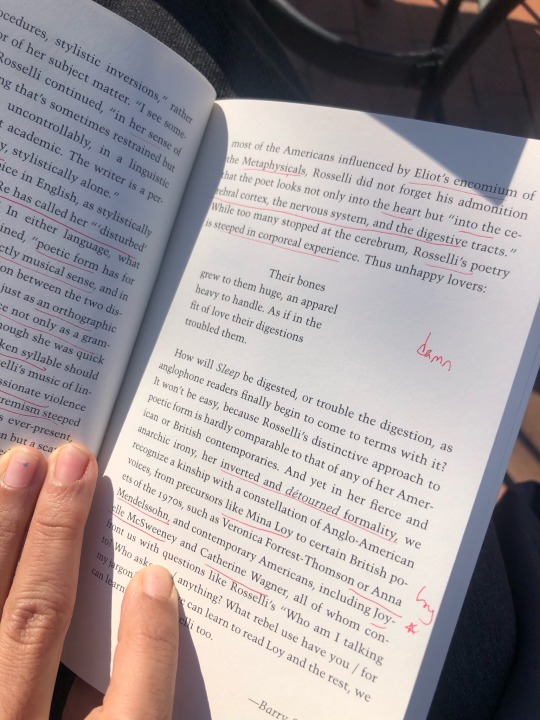 ocedures, stylistic inversions," rather
or of her subject matter. "I see some-
Rosselli continued, "in her sense of
ng that's sometimes restrained but
uncontrollably, in a linguistic
t academic. The writer is a per-
y, stylistically alone."
oice in English, as stylistically
Re has called her "'disturbed'
In either language, what
ined, "poetic form has for
ctly musical sense, and in
on between the two dis-
just as an orthographic
ce not only as a gram-
hough she was quick
ken syllable should
elli's music of lin-
ssionate violence
tremism steeped
s ever-present,
en but a sca
most of the Americans influenced by Eliot's encomium of
the Metaphysicals, Rosselli did not forget his admonition
that the poet looks not only into the heart but "into the ce-
rebral cortex, the nervous system, and the digestive tracts."
While too many stopped at the cerebrum, Rosselli's poetry
is steeped in corporeal experience. Thus unhappy lovers:
Their bones
grew to them huge, an apparel
heavy to handle. As if in the
fit of love their digestions
troubled them.
damn
How will Sleep be digested, or trouble the digestion, as
anglophone readers finally begin to come to terms with it?
It won't be easy, because Rosselli's distinctive approach to
poetic form is hardly comparable to that of any of her Amer-
ican or British contemporaries. And yet in her fierce and
anarchic irony, her inverted and détourned formality, we
recognize a kinship with a constellation of Anglo-American
voices, from precursors like Mina Loy to certain British po-
ets of the 1970s, such as Veronica Forrest-Thomson or Anna
Mendelssohn, and contemporary Americans, including Joy-
elle McSweeney and Catherine Wagner, all of whom con-
front us with questions like Rosselli's "Who am I talking
to? Who asks / anything? What rebel use have you / for
my jargon can learn to read Loy and the rest, we
can learn elli too.
—Barry